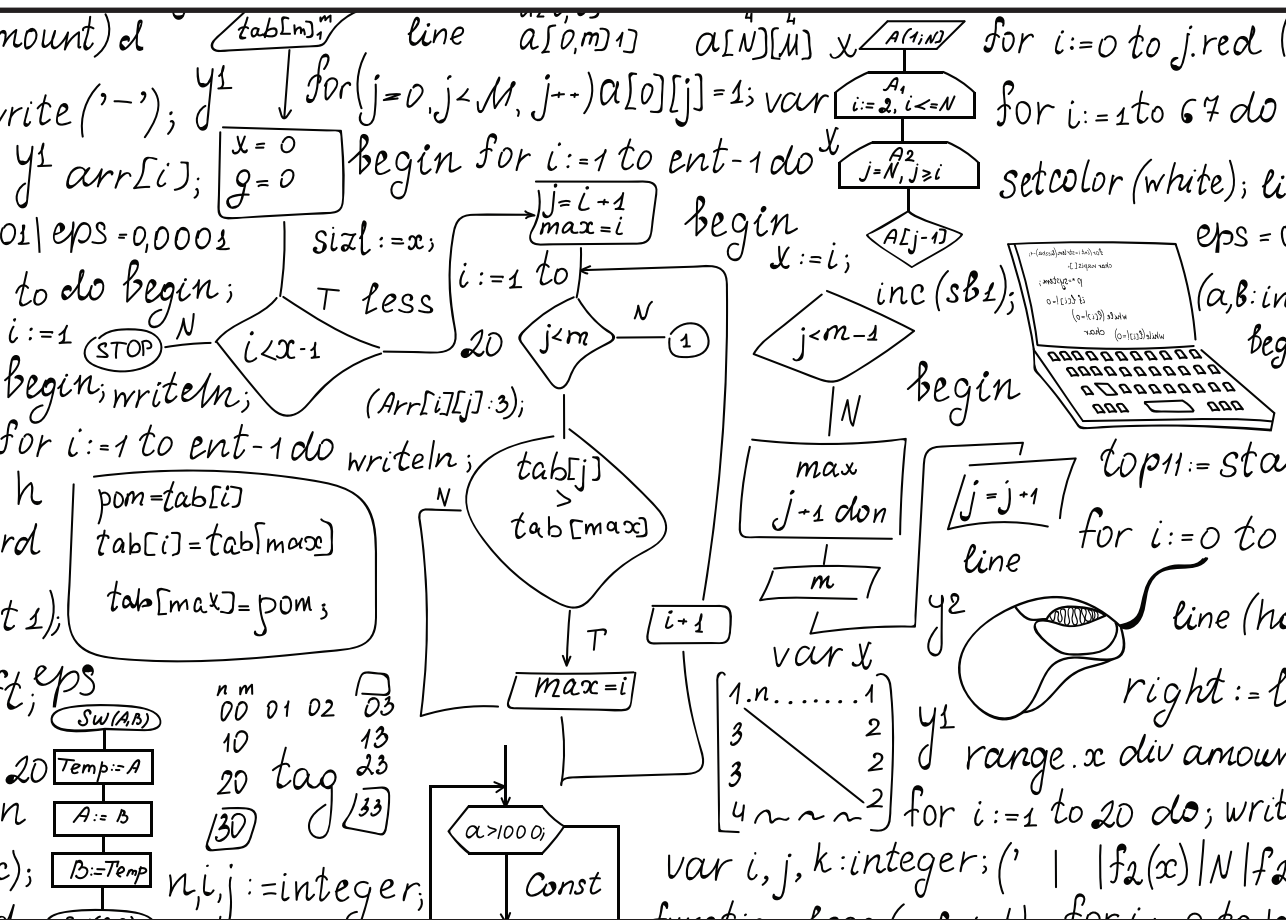 mount) d
tab[m]₁ᵐ
line
a[0,m]1]
a[N][M]
X
A(1;N)
for i:=0 to j.red (
write('-');
y1
for(j=0, j<M, j++)a[0][j]=1; var
A₁
i:=2, i<=N
for i:=1 to 67 do
y1 arr[i];
x = 0
g = 0
begin for i:=1 to ent-1 do X
A2
j=N, j⩾i
setcolor (white); li
01| eps =0,0001
sizl:=x;
j=i+1
max=i
begin
A[j-1]
eps =
to do begin;
T less
i:=1 to
x:=i;
inc (sb1);
(a,b:in
i:=1
STOP
N
i<x-1
20
j<m
N
1
j<m-1
beg
begin; writeln;
(Arr[i][j]:3);
N
begin
for i:=1 to ent-1 do
writeln;
tab[j]
>
tab[max]
max
j+1 don
j=j+1
top11:= sta
h
pom=tab[i]
N
rd
tab[i]=tab[max]
line
for i:=0 to
tab[max]=pom;
m
t 1);
i+1
y2
line (ho
T
var X
ft; eps
max=i
right:= l
n m
00 01 02 03
1.n.......1
3 2
3 2
4 2
y1
SW(A,B)
10 13
range.x div amoun
20
Temp:=A
20 tag 23
n
A:= B
30 33
for i:=1 to 20 do; writ
a>1000;
c);
B:=Temp
n,i,j:=integer;
Const
var i, j, k:integer;(' | |f2(x)|N|f2